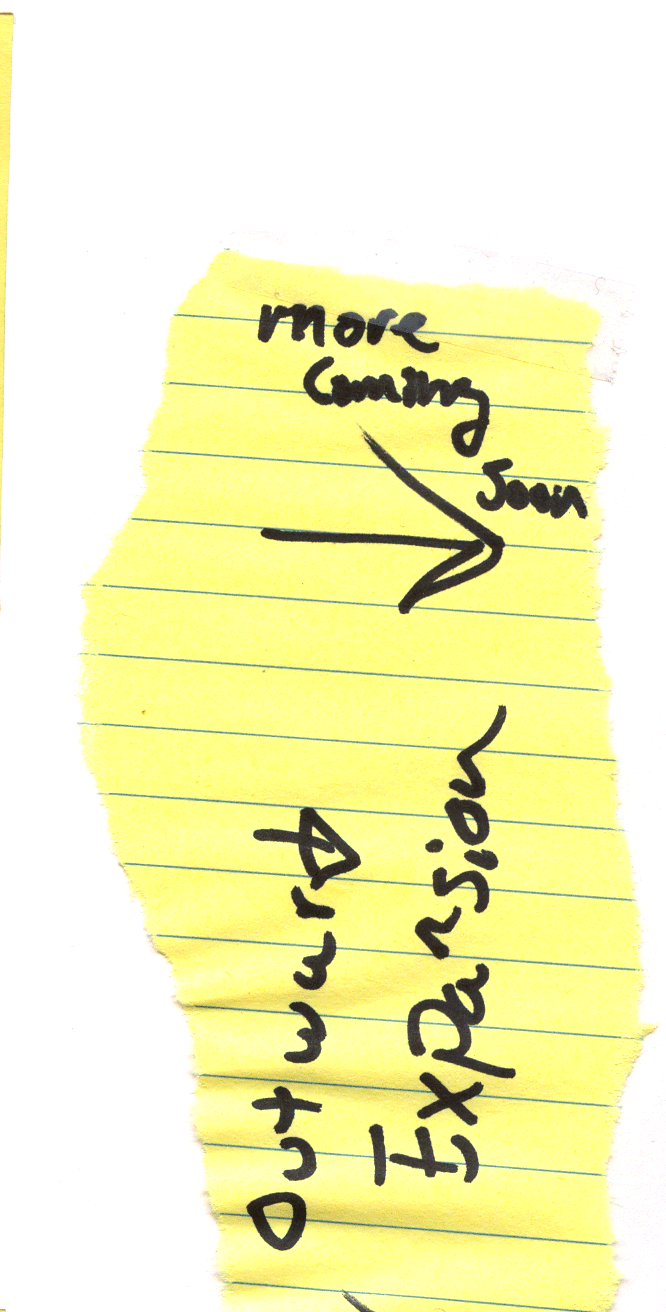 more
coming
soon
outward
Expansion